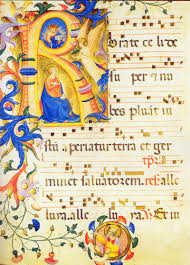 Rorate celi de
su per et nu
bes pluāt iu
stū aperiatur terra et ger
minet saluatorem. alle
luia. alle luia. Et iu